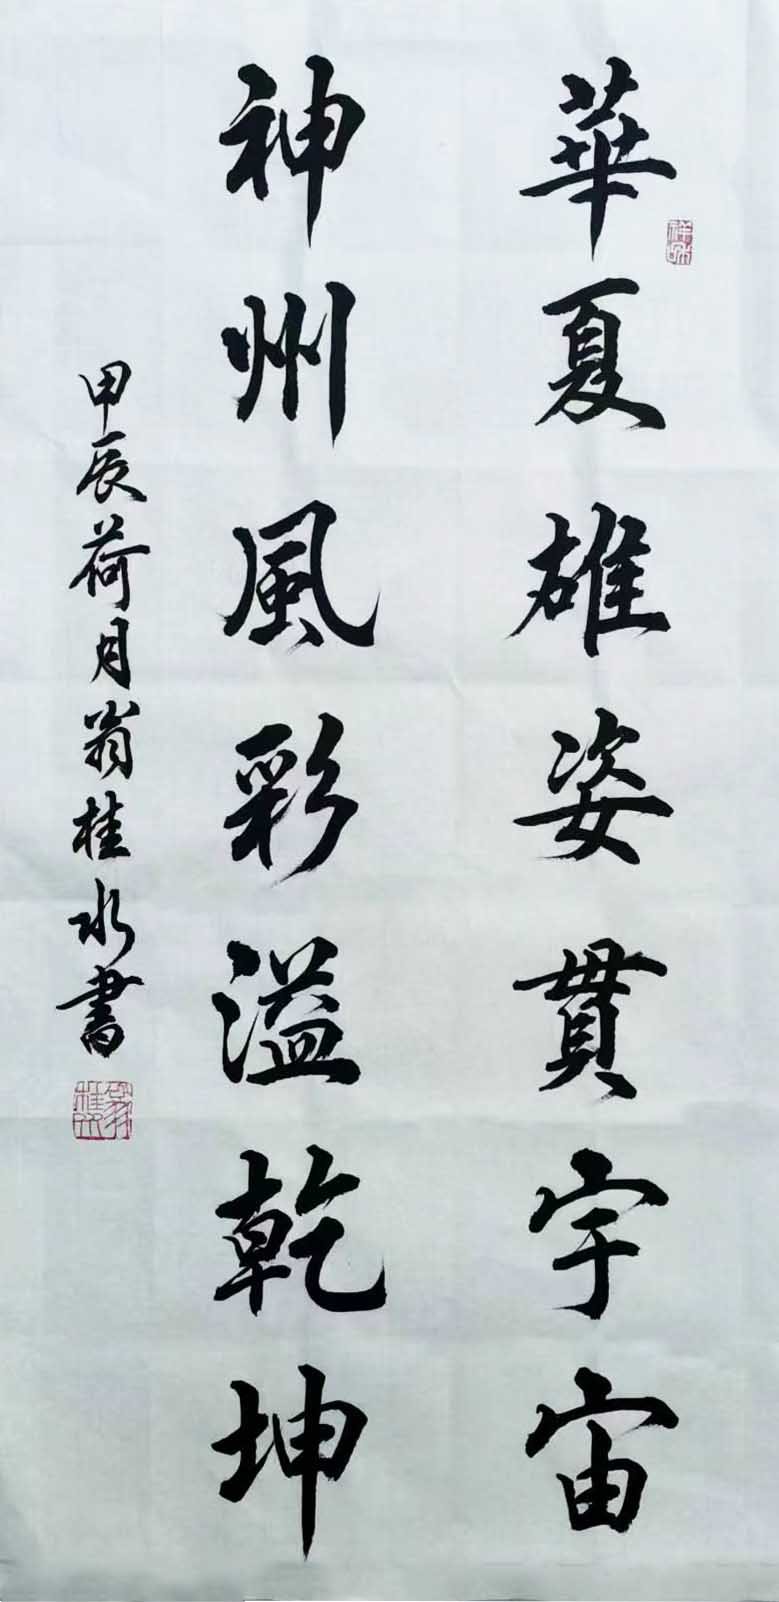 華夏雄姿貫宇宙
神州風彩溢乾坤
甲辰荷月翁桂水書